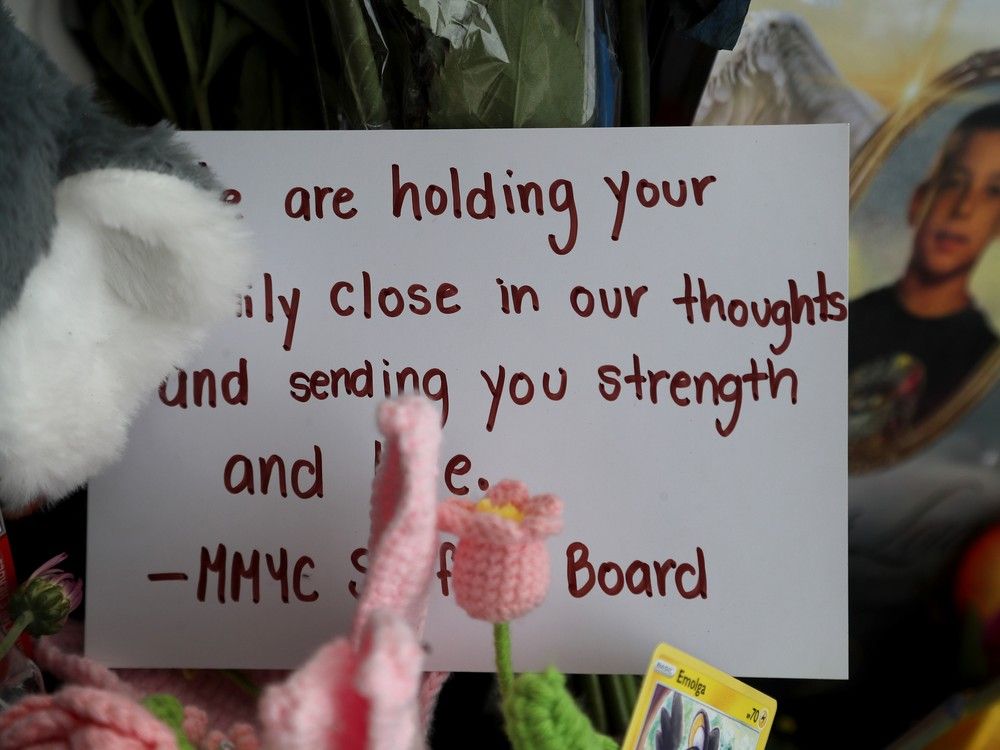 are holding your
close in our thoughts
and sending you strength
and
-MMYC Board
BASIC Emolga HP 70